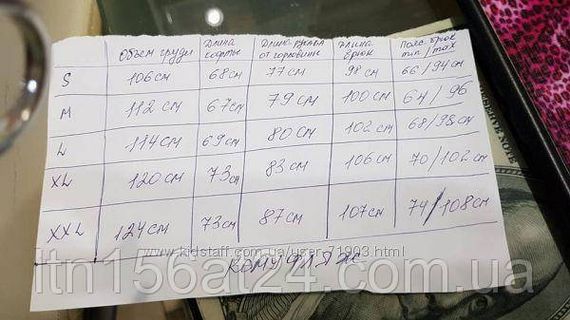 Объем груди Длина кофты Длина рукава от горловины Длина брюк Пояс брюк min/max
S 106см 68см 77см 98см 66/94см
M 112см 67см 79см 100см 64/96
L 114см 69см 80см 102см 68/98см
XL 120см 73см 83см 106см 70/102см
XXL 124см 73см 87см 107см 74/108см
www.kidstaff.com.ua/user-71903.html
камуфляж
itn156at24.com.ua